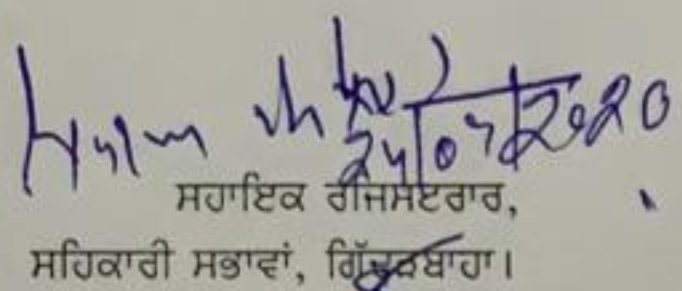 24/07/2020
ਸਹਾਇਕ ਰਜਿਸਟਰਾਰ,
ਸਹਿਕਾਰੀ ਸਭਾਵਾਂ, ਗਿੱਦੜਬਾਹਾ।